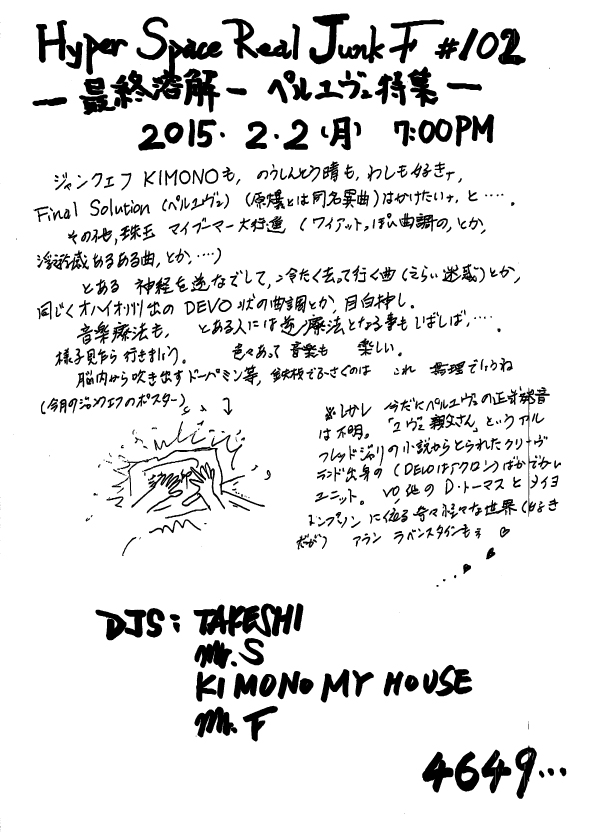 Hyper Space Real Junk F #102
— 最終溶解 — ペルユヴュ特集 —
2015. 2. 2 (月) 7:00PM
ジャンクエフ KIMONOも, のうしんとう晴も, わしも好きナ,
Final Solution (ペルユヴュ) (原爆とは同名異曲) はかけたいナ, と…….
その他, 珠玉 マイブーマー大行進, (ワイアットっぽい曲調の, とか,
浮遊感あるある曲, とか, ….)
とある 神経を逆なでして, 冷たく去って行く曲 (えらい迷惑) とか,
同じくオハイオ州出の DEVO 状の曲調とか, 目白押し.
音楽療法も, とある人には逆療法となる事もしばしば, ….
様子見ながら行きましょう. 色々あって 音楽も 楽しい.
脳内から吹き出すドーパミン等, 鉄板でふさぐのは これ 無理でしょうね
(今月のジャンクエフのポスター)
今だにペルユヴュの正式発音
は不明. 「ユヴュ親父さん」というアル
フレッドジャリの小説からとられたクリーヴ
ランド出身の (DEVOはアクロン) ばかでかい
ユニット. VO, 他の D・トーマスと メイヨ
トンプソンに依る奇々怪々な世界 (好き
だが) アラン ラベンスタインもネ
DJS: TAKESHI
Mr. S
KIMONO MY HOUSE
Mr. F
4649...